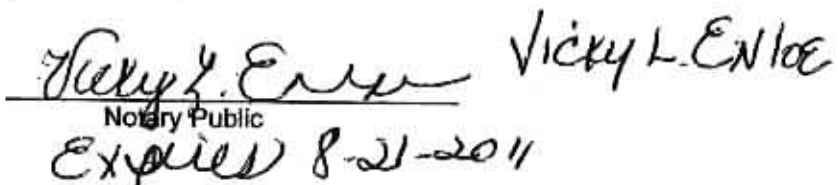 Vicky L. Enloe Vicky L. Enloe
Notary Public
Expires 8-21-2011